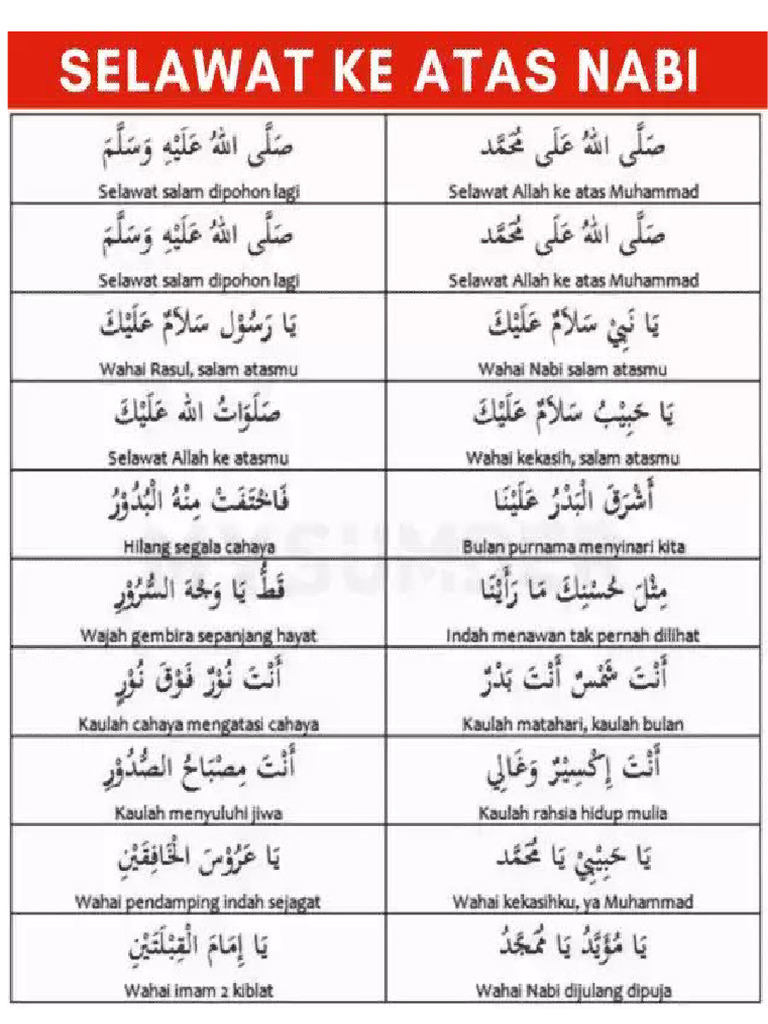 SELAWAT KE ATAS NABI
صَلَّى اللهُ عَلَى مُحَمَّد
Selawat Allah ke atas Muhammad
صَلَّى اللهُ عَلَيْهِ وَسَلَّمَ
Selawat salam dipohon lagi
صَلَّى اللهُ عَلَى مُحَمَّد
Selawat Allah ke atas Muhammad
صَلَّى اللهُ عَلَيْهِ وَسَلَّمَ
Selawat salam dipohon lagi
يَا نَبِيْ سَلَامٌ عَلَيْكَ
Wahai Nabi salam atasmu
يَا رَسُوْل سَلَامٌ عَلَيْكَ
Wahai Rasul, salam atasmu
يَا حَبِيْبُ سَلَامٌ عَلَيْكَ
Wahai kekasih, salam atasmu
صَلَوَاتُ الله عَلَيْكَ
Selawat Allah ke atasmu
أَشْرَقَ الْبَدْرُ عَلَيْنَا
Bulan purnama menyinari kita
فَاخْتَفَتْ مِنْهُ الْبُدُوْرُ
Hilang segala cahaya
مِثْلَ حُسْنِكَ مَا رَأَيْنَا
Indah menawan tak pernah dilihat
قَطُّ يَا وَجْهَ السُّرُوْرِ
Wajah gembira sepanjang hayat
أَنْتَ شَمْسٌ أَنْتَ بَدْرٌ
Kaulah matahari, kaulah bulan
أَنْتَ نُوْرٌ فَوْقَ نُوْرٍ
Kaulah cahaya mengatasi cahaya
أَنْتَ إِكْسِيْرٌ وَغَالِي
Kaulah rahsia hidup mulia
أَنْتَ مِصْبَاحُ الصُّدُوْرِ
Kaulah menyuluhi jiwa
يَا حَبِيْبِيْ يَا مُحَمَّد
Wahai kekasihku, ya Muhammad
يَا عَرُوْسَ الْخَافِقَيْنِ
Wahai pendamping indah sejagat
يَا مُؤَيَّدُ يَا مُمَجَّدُ
Wahai Nabi dijulang dipuja
يَا إِمَامَ الْقِبْلَتَيْنِ
Wahai imam 2 kiblat
MYSUMBER